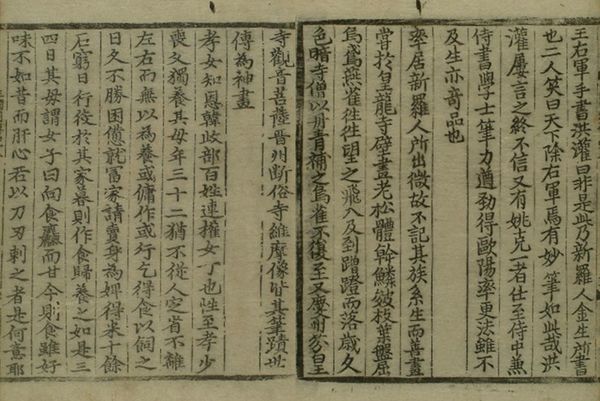 王右軍手書洪灌曰非是此乃新羅人金生所書
也二人笑曰天下除右軍焉有妙筆如此哉洪
灌屢言之終不信又有姚克一者仕至侍中兼
侍書學士筆力遒勁得歐陽率更法雖不
及生亦奇品也
率居新羅人所出微故不記其族系生而善畫
嘗於皇龍寺壁畫老松體幹鱗皴枝葉盤屈
烏鳶燕雀往往望之飛入及到蹭蹬而落歲久
色暗寺僧以丹青補之烏雀不復至又慶州芬皇
寺觀音菩薩晉州斷俗寺維摩像皆其筆蹟世
傳為神畫
孝女知恩韓歧部百姓連權女子也性至孝少
喪父獨養其母年三十二猶不從人定省不離
左右而無以為養或傭作或行乞得食以飼之
日久不勝困憊就富家請賣身為婢得米十餘
石窮日行役於其家暮則作食歸養之如是三
四日其母謂女子曰向食麤而甘今則食雖好
味不如昔而肝心若以刀刃刺之者是何意耶